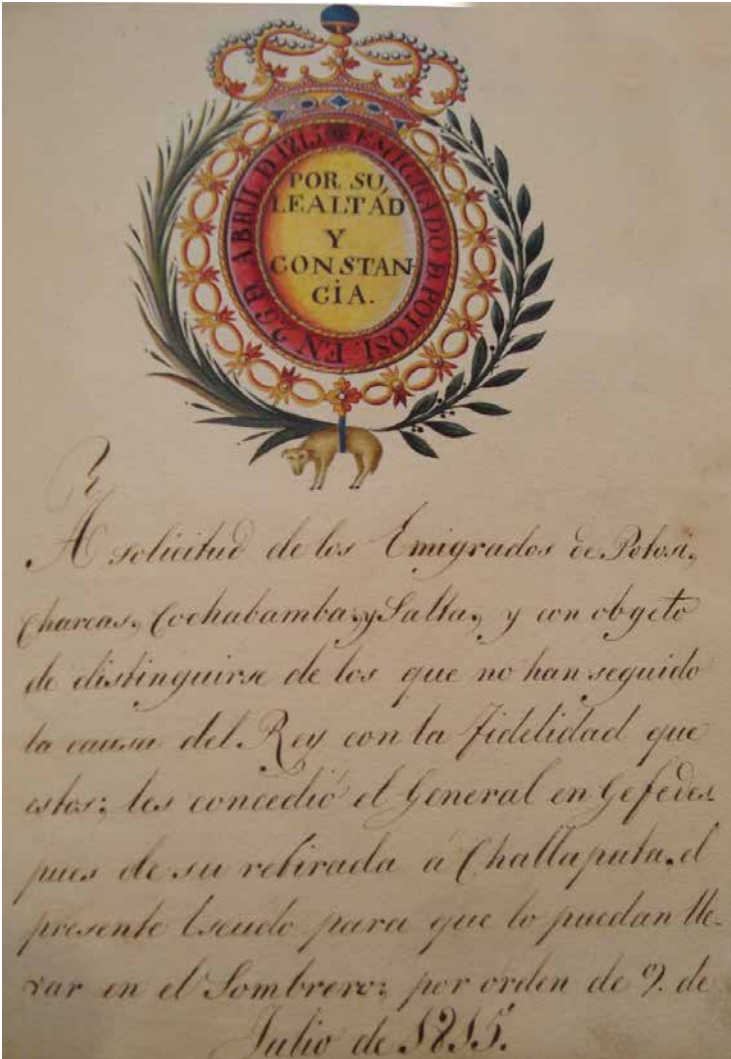 EMIGRADO D POTOSI. EN 26 D ABRIL D 1815
POR SU
LEALTAD
Y
CONSTAN-
CIA.
A solicitud de los Emigrados de Potosi,
Charcas, Cochabamba, y Salta, y con obgeto
de distinguirse de los que no han seguido
la causa del Rey con la fidelidad que
estos; les concedió el General en Gefe des-
pues de su retirada á Challapata, el
presente Escudo para que lo puedan lle-
var en el Sombrero; por orden de 9. de
Julio de 1815.